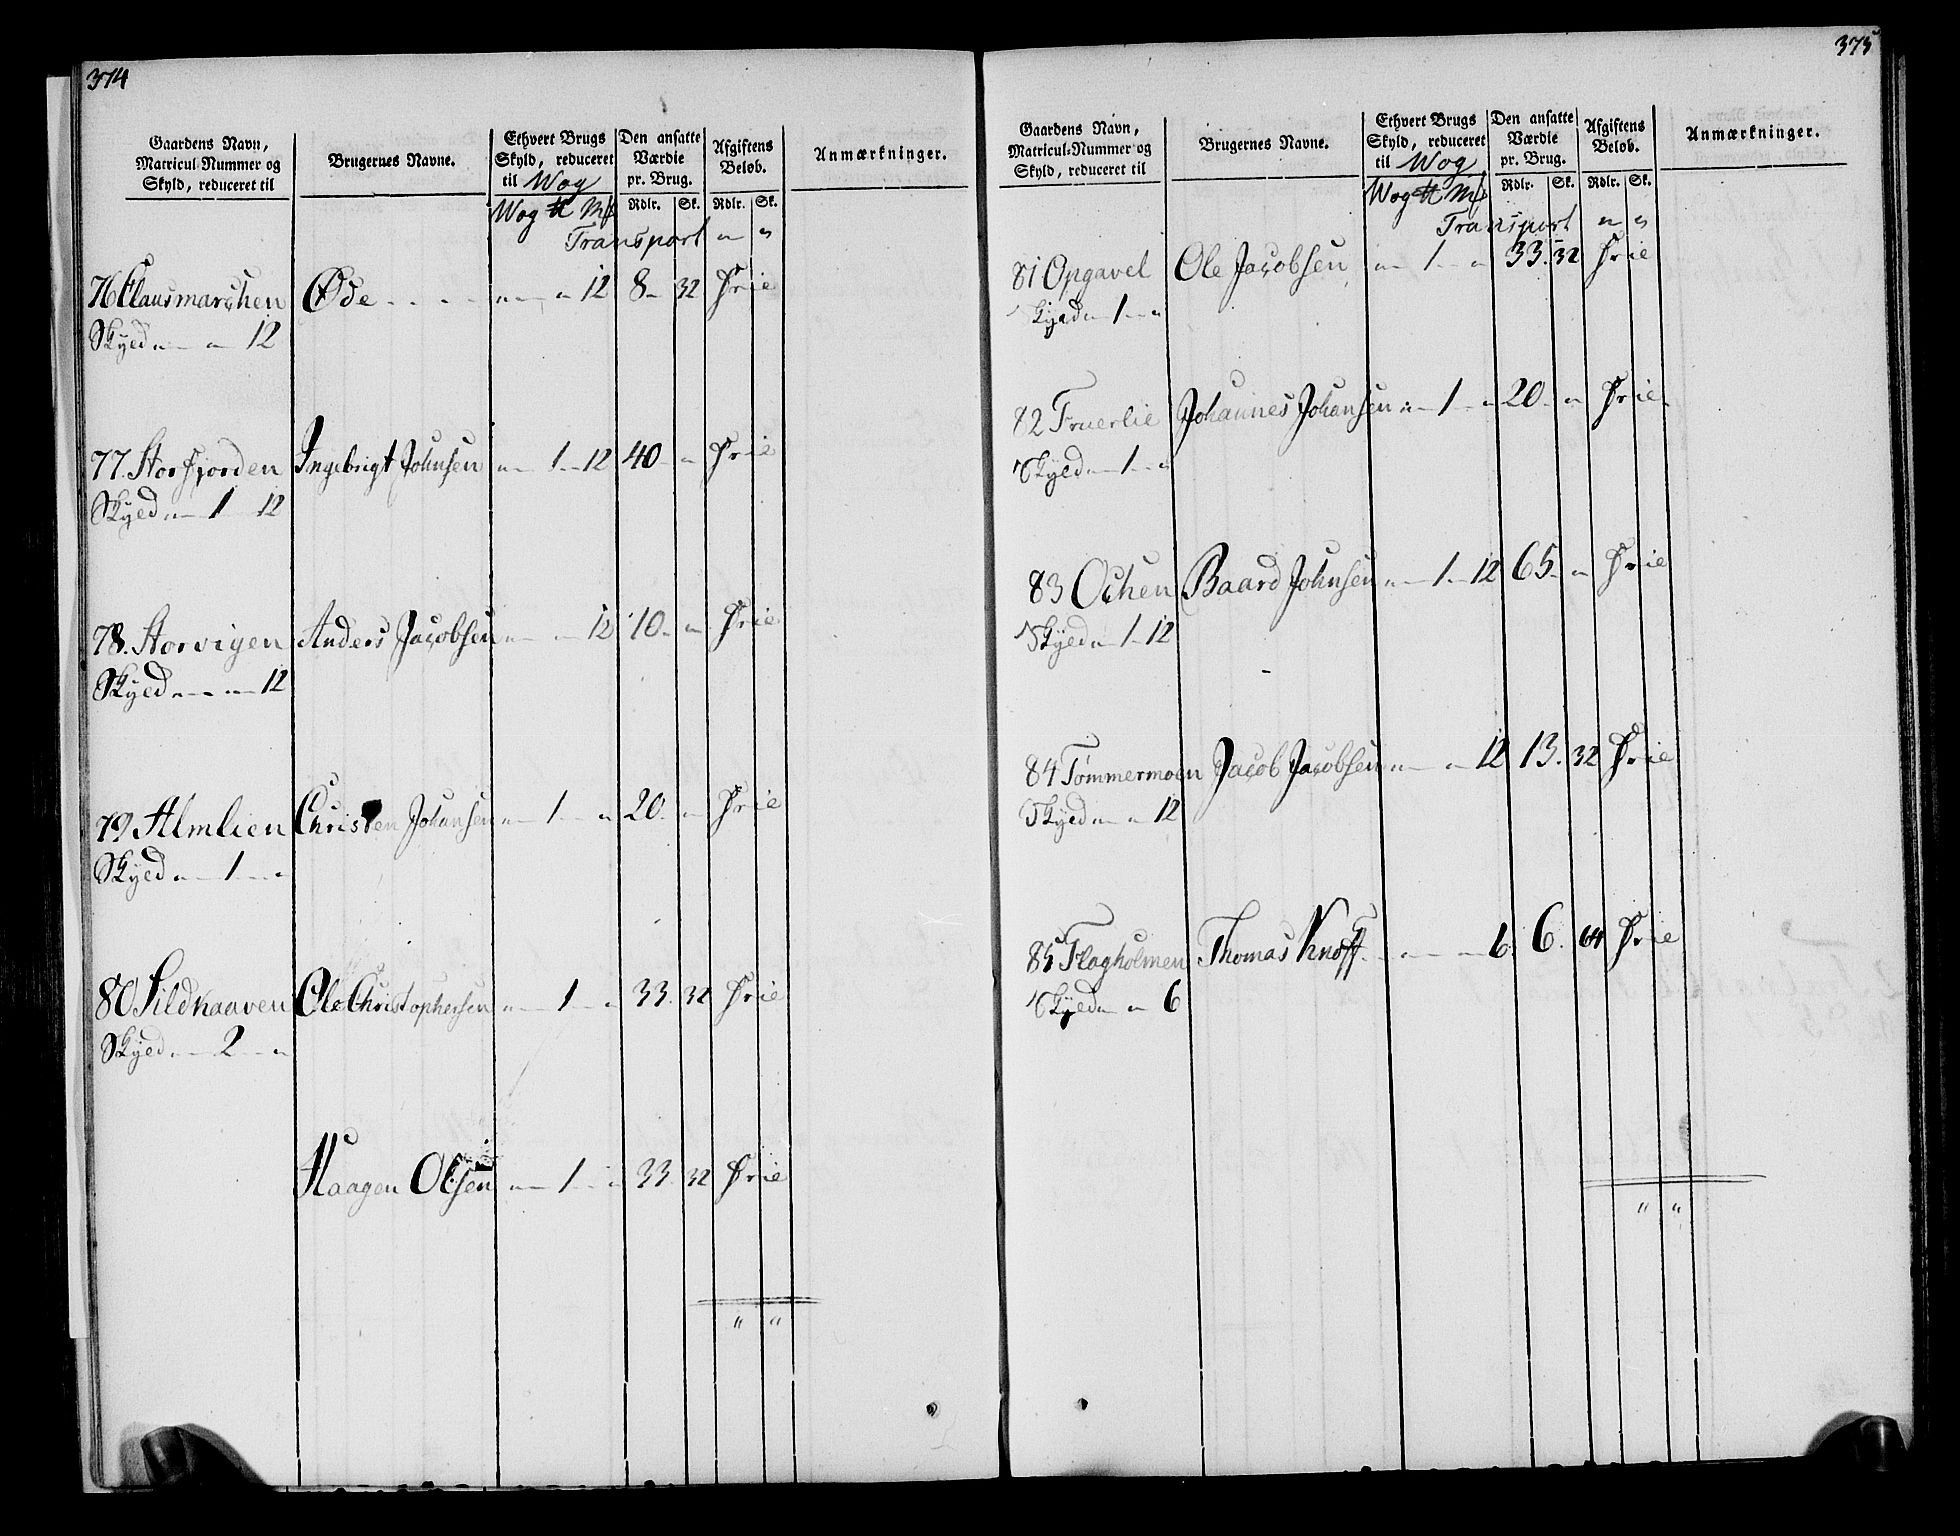 374
Gaardens Navn, Matricul-Nummer og Skyld, reduceret til
Brugernes Navne.
Ethvert Brugs Skyld, reduceret til Wog
Den ansatte Værdie pr. Brug.
Afgiftens Beløb.
Anmærkninger.
Wog ℔ Mk Rdlr. Sk. Rdlr. Sk.
Transport " "
76 Clausmarchen Øde - - - - " - " 12 8 - 32 Frie
Skyed " - " - 12
77. Storfjorden Ingebrigt Johnsen " - 1 - 12 40 - " Frie
Skyed " - 1 - 12
78. Storvigen Anders Jacobsen " - " 12 10 - " Frie
Skyed " - " - 12
79 Almlien Christen Johansen " - 1 - " 20 - " Frie
Skyed " - 1 - "
80 Sildhaaven Ole Christophersen " - 1 - " 33. 32 Frie
Skyed " - 2 - "
Haagen Olsen " - 1 - " 33. 32 Frie
" "
375
Gaardens Navn, Matricul-Nummer og Skyld, reduceret til
Brugernes Navne.
Ethvert Brugs Skyld, reduceret til Wog
Den ansatte Værdie pr. Brug.
Afgiftens Beløb.
Anmærkninger.
Wog ℔ Mk Rdlr. Sk. Rdlr. Sk.
Transport " "
81 Opgavel Ole Jacobsen " - 1 - " 33. 32 Frie
Skyed " - 1 - "
82 Fruerlie Johannes Johansen " - 1 - " 20 - " Frie
Skyed " - 1 - "
83 Ochen Baard Johnsen " - 1 - 12 65 - " Frie
Skyed " - 1 - 12
84 Tømmermoen Jacob Jacobsen " - " - 12 13. 32 Frie
Skyed " - " 12
85 Flagholmen Thomas Knoff - - - - 6. 6. 64 Frie
Skyed " - " 6
" "